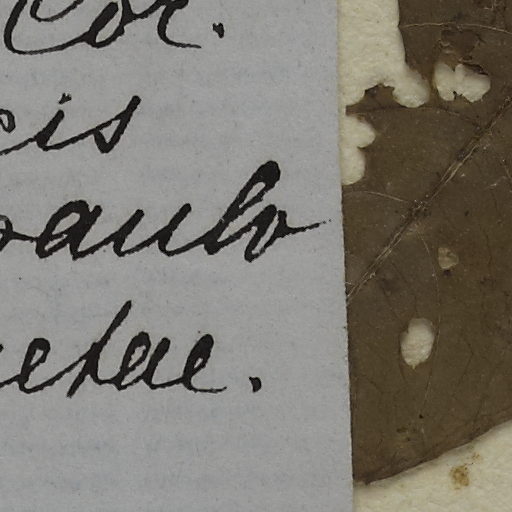 Cor.
cis
paulo
etae.